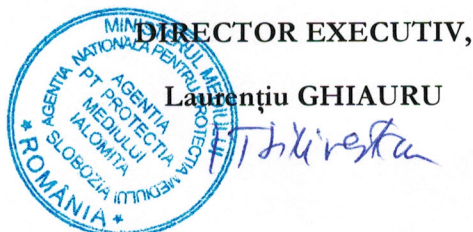 DIRECTOR EXECUTIV,
Laurențiu GHIAURU
MINISTERUL MEDIULUI
AGENTIA NATIONALA PENTRU PROTECTIA MEDIULUI
AGENTIA
PT PROTECTIA
MEDIULUI
IALOMITA
SLOBOZIA
* ROMÂNIA *